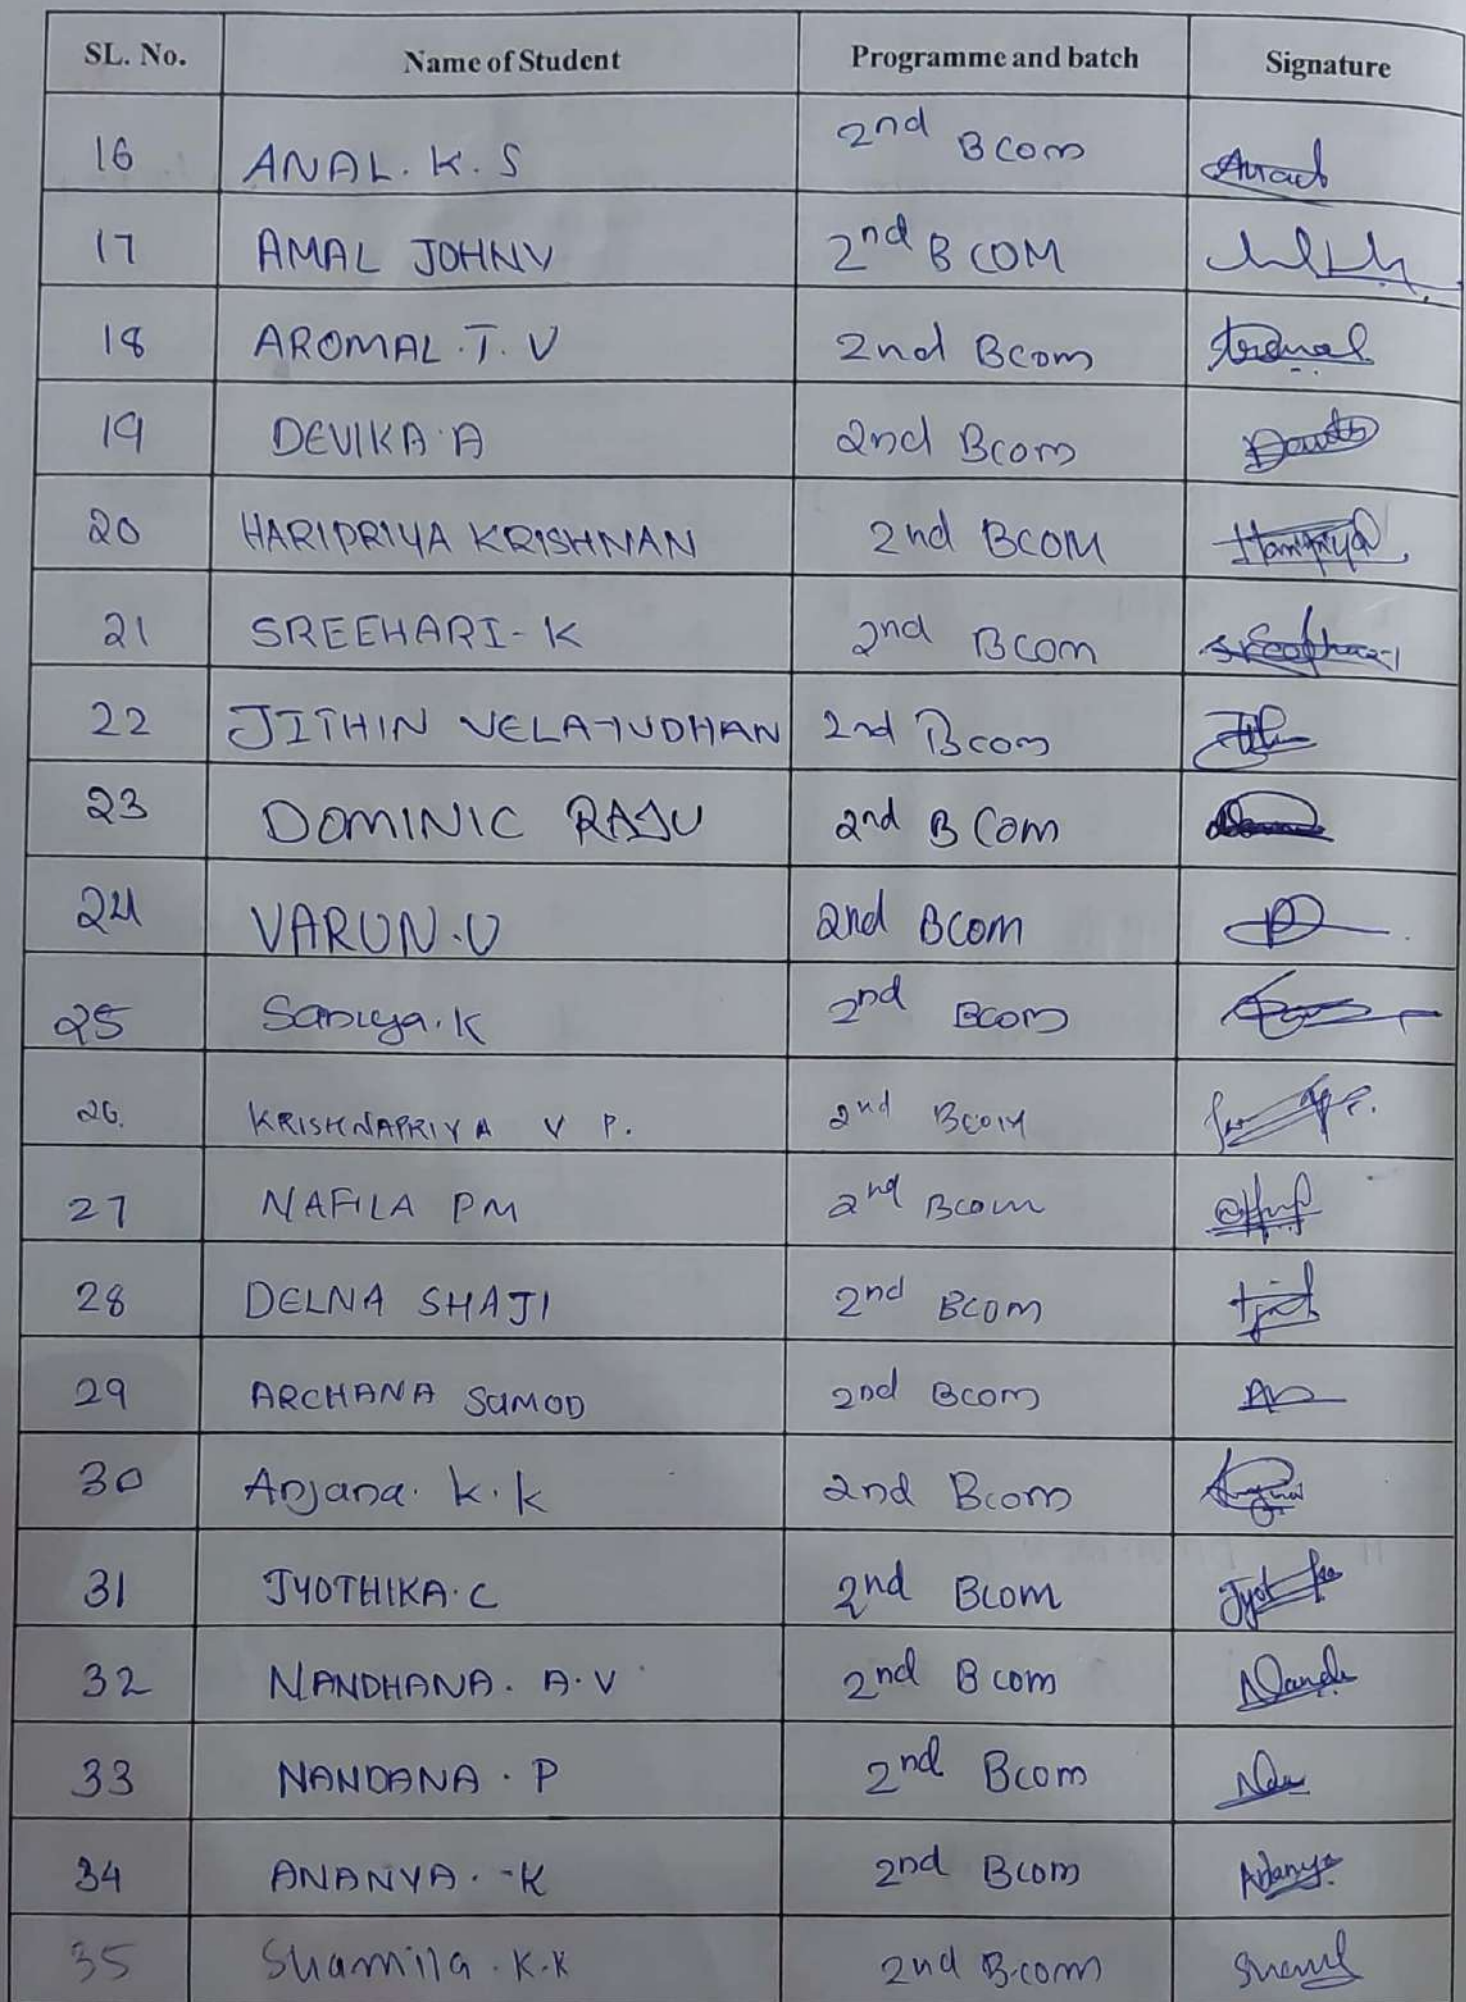 SL. No. Name of Student Programme and batch Signature
16 ANAL. K. S 2nd BCom
17 AMAL JOHNY 2nd BCOM
18 AROMAL. T. V 2nd Bcom
19 DEVIKA A 2nd Bcom
20 HARIPRIYA KRISHNAN 2nd BCOM Haripriya
21 SREEHARI - K 2nd Bcom Sreehari
22 JITHIN VELAYUDHAN 2nd Bcom
23 DOMINIC RAJU 2nd B Com
24 VARUN. V 2nd BCom
25 K 2nd Bcom
26. KRISHNAPRIYA V P. 2nd BCOM
27 NAFILA PM 2nd Bcom
28 DELNA SHAJI 2nd BCOM
29 ARCHANA 2nd Bcom
30 Anjana. K. K 2nd Bcom
31 JYOTHIKA. C 2nd Bcom
32 NANDHANA. A. V 2nd B com
33 NANDANA. P 2nd Bcom
34 ANANYA. - K 2nd Bcom Ananya
35 Shamila. K. K 2nd B.com